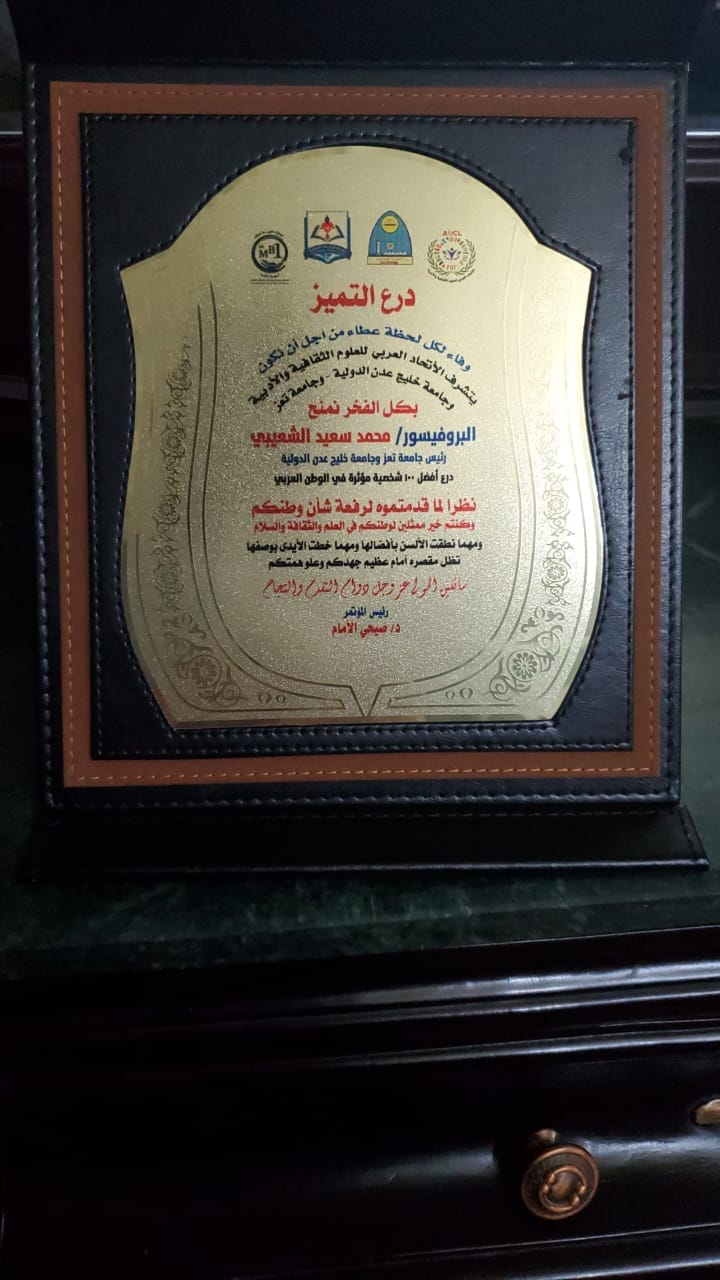 AUCL
MB1
درع التميز
وفاء لكل لحظة عطاء من اجل أن نكون
يتشرف الأتحاد العربي للعلوم الثقافية والأدبية
وجامعة خليج عدن الدولية - وجامعة تعز
بكل الفخر نمنح
البروفيسور/ محمد سعيد الشعيبي
رئيس جامعة تعز وجامعة خليج عدن الدولية
درع أفضل ١٠٠ شخصية مؤثرة في الوطن العربي
نظرا لما قدمتموه لرفعة شأن وطنكم
وكنتم خير ممثلين لوطنكم في العلم والثقافة والسلام
ومهما نطقت الألسن بأفضالها ومهما خطت الأيدى بوصفها
تظل مقصره أمام عظيم جهدكم وعلو همتكم
سائلين المولا عز وجل دوام التقدم والنجاح
رئيس المؤتمر
د/ صبحي الأمام